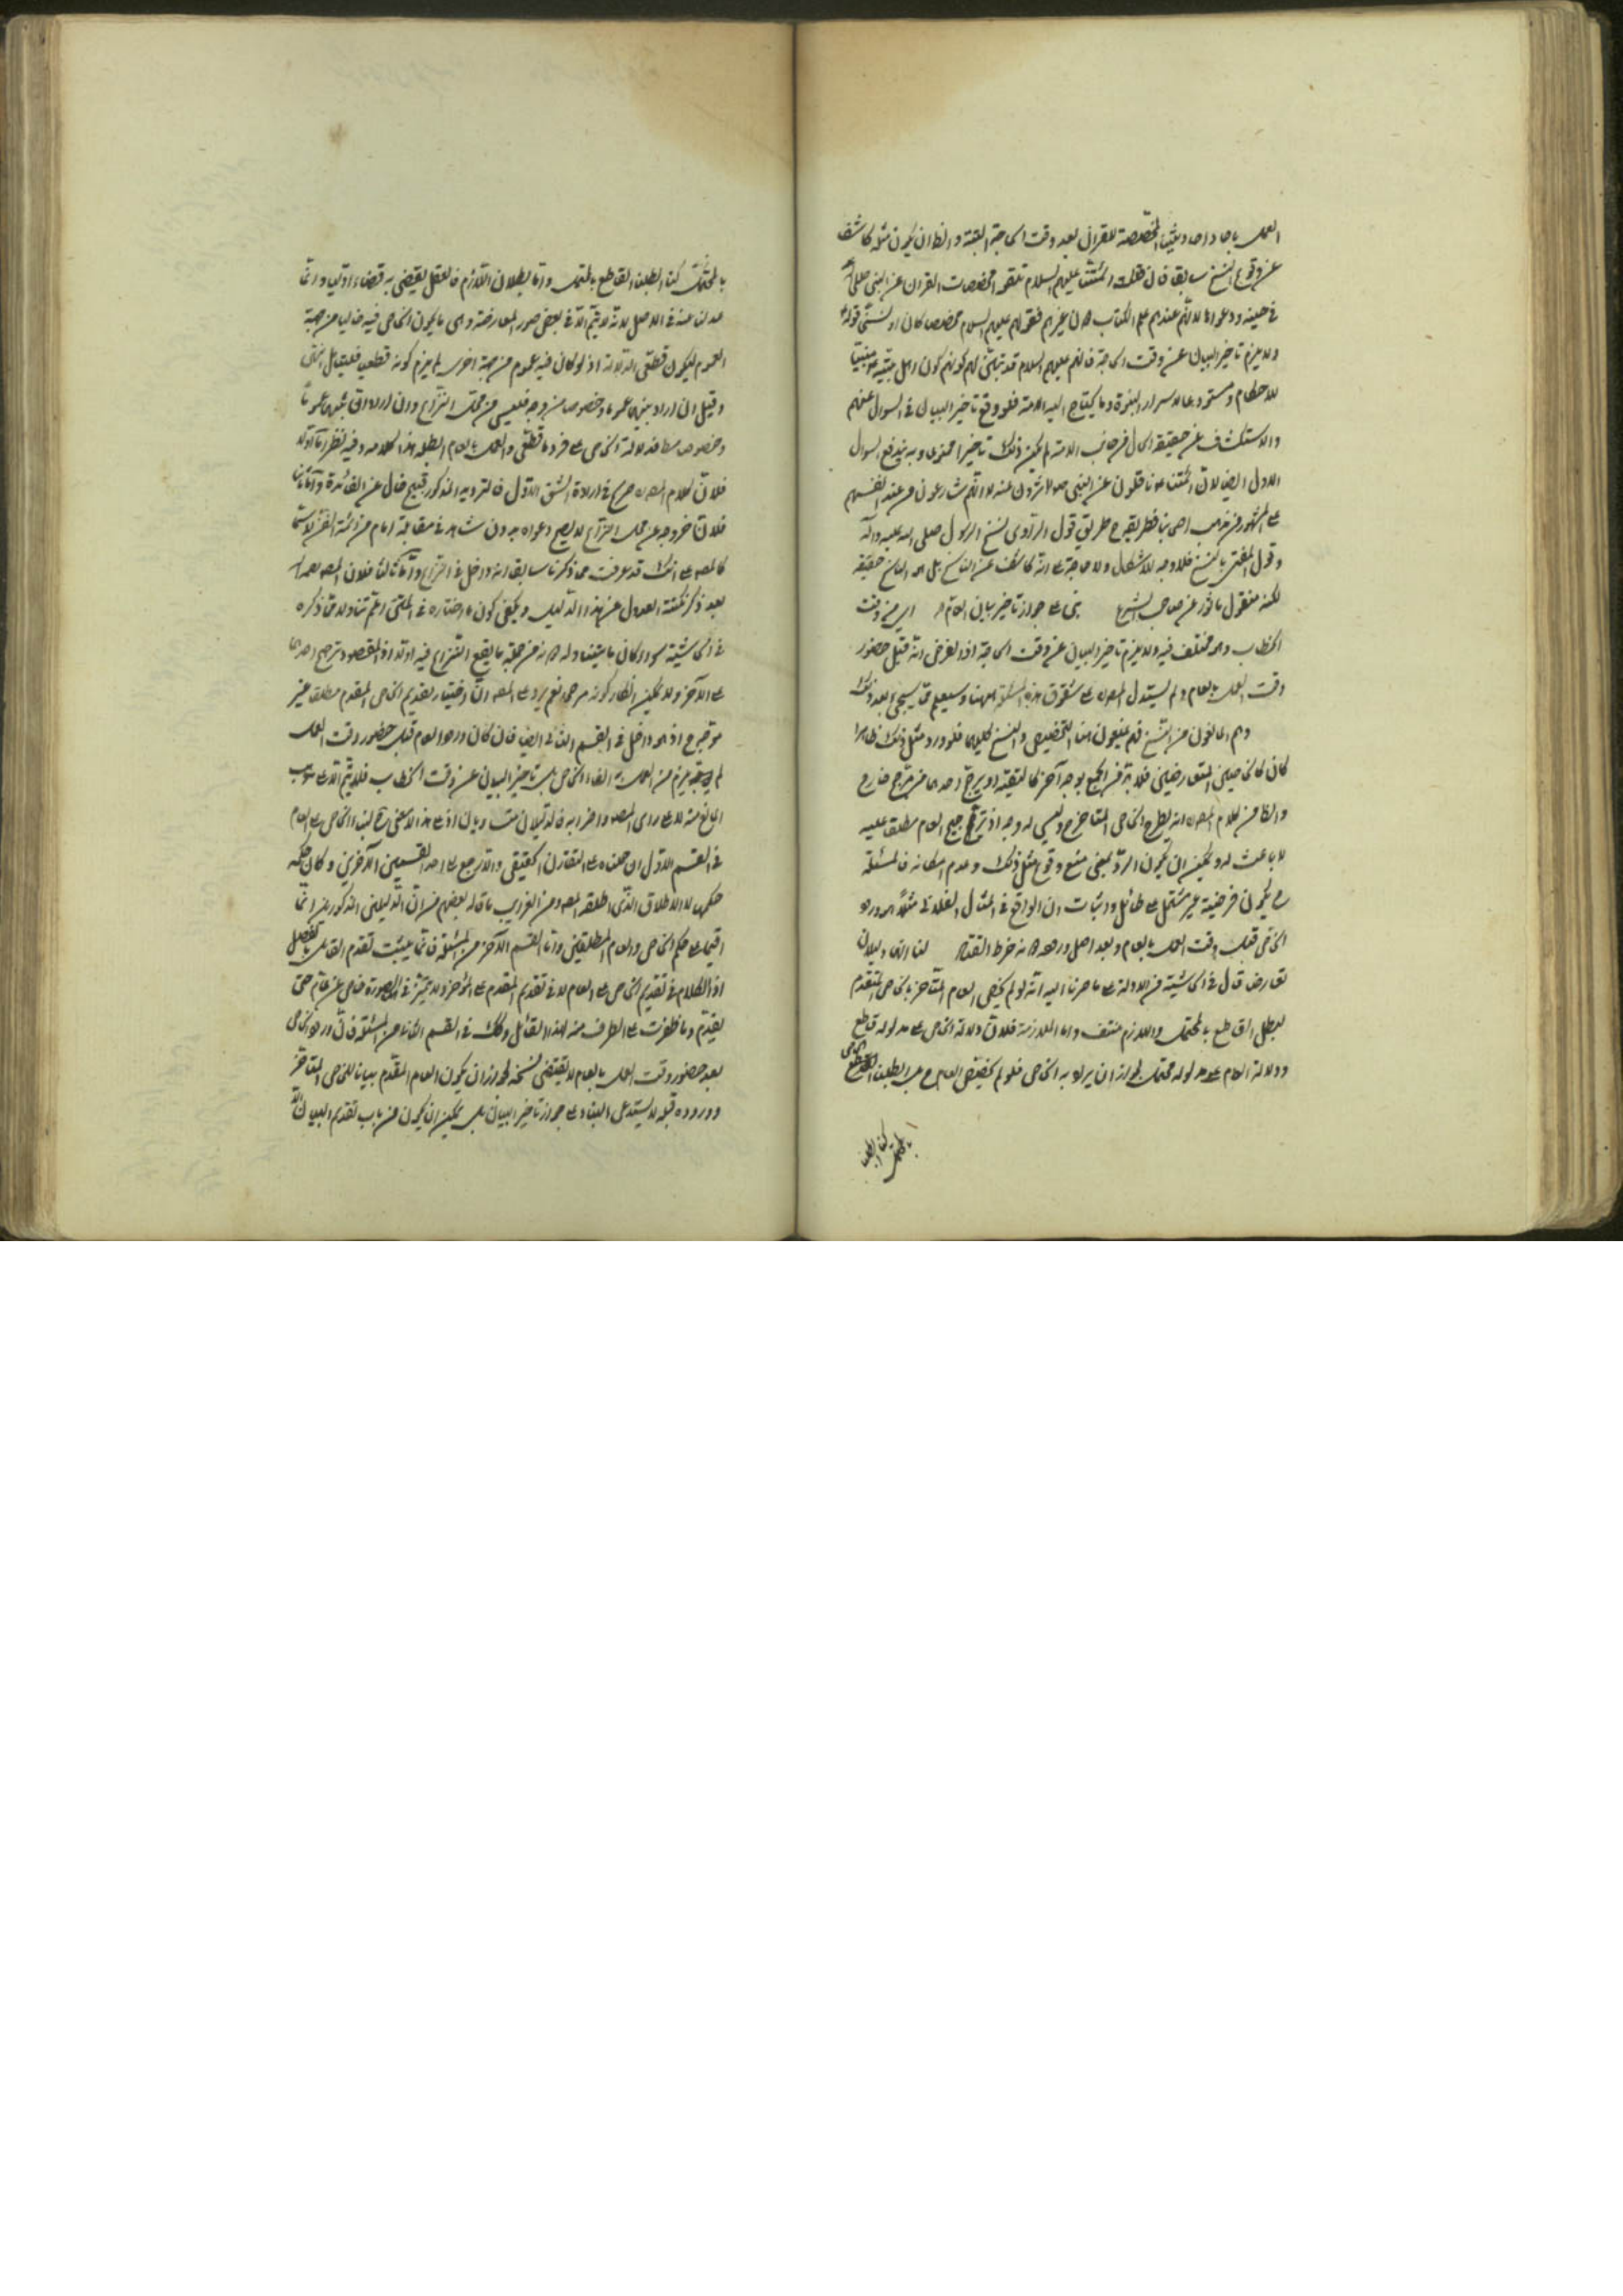 العمل باحاد احاديثنا المخصصة للقران بعد وقت الحاجة البتة والظ ان يكون مثله كاشفا
عن وقوع النسخ سابقا فان قلت ائمتنا عليهم السلام تلقوا مخصصات القران عن النبي صلى
في حينه ودعوا الانهم عندهم علم الكتاب دون غيرهم فقولهم عليهم السلام مخصص كان او
ولا يلزم تاخير البيان عن وقت الحاجة فانهم عليهم السلام قد
للاحكام ومستودعا لاسرار النبوة وما يحتاج اليه الامة فلو وقع تاخير البيان في السؤال عنهم
والاستكشاف عن حقيقة الحال من جانب الامة لم يكن ذلك تاخيرا وبه يندفع السؤال
الاول ايضا لان ائمتنا ناقلون عن النبي عنه لا انهم شارعون من عند انفسهم
على المشهور من مذهب اصحابنا فطريقهم طريق قول الراوي نسخ الرسول صلى الله عليه وآله
وقول المفتي بالنسخ فلا وجه للاشكال ولا حاجة الى انه كاشف عن الناسخ بل هو الناسخ حقيقة
لكنه منقول ماثور عن صاحب الشرع بنى على جواز تاخير بيان العام اي من وقت
الخطاب وهو مختلف فيه ولا يلزم تاخير البيان عن وقت الحاجة اذ الفرض انه قبل حضور
وقت العمل بالعام ولم يستدل المص على شقوق هذه المسئلة ههنا وسيعلم مما سيجئ بعد ذلك
وهم المانعون من النسخ فهم يمنعون هنا التخصيص والنسخ كليهما فلو ورد مثل ذلك ظاهرا
كان كالخاصين المتعارضين فلا بد من الجمع بوجه آخر كالتقية او يرجح احدهما من مرجح خارج
والظ من كلام المص انه يطرح الخاص المتاخر وليس له وجه اذ ترجيح العام مطلقا عليه
لا باعث له ويمكن ان يكون الرد بمعنى منع وقوع مثل ذلك وعدم امكانه فالمسئلة
ح يكون فرضية غير مشتمل على طائل واثبات ان الواقع في المثال الفلاني مثلا هو ورود
الخاص قبل وقت العمل بالعام وبعد اصل وروده دونه خرط القتاد لنا انهما دليلان
تعارضا قال في الحاشية من الادلة على ما صرنا اليه انه لو لم يخص العام المتأخر بالخاص المتقدم
لبطل القاطع بالمحتمل واللازم منتف واما الملازمة فلان دلالة الخاص على مدلوله قاطع
ودلالة العام على مدلوله محتمل لجواز ان يراد به الخاص فلو لم يخصص العام بل ابطلنا الخاص القاطع
بالمحتمل كنا ابطلنا
بالمحتمل كنا ابطلنا القاطع بالمحتمل واما بطلان اللازم فالعقل يقضي به قضاء اوليا وانما
عدلنا عنه في الاصل لانه لا يتم الا في بعض صور المعارضة وهي ما يكون الخاص فيه خاليا من جهة
العموم ليكون قطعي الدلالة اذ لو كان فيه عموم من جهة اخرى لم يلزم كونه قطعيا فليتامل انتهى
وقيل ان اراد بينهما عموما وخصوصا من وجه فليس من محل النزاع وان اراد ان بينهما عموما
وخصوصا مطلقا فدلالة الخاص على فرد ما قطعي والعمل بالعام ابطله هذا كلامه وفيه نظر اما اولا
فلان كلام المص صريح في ارادة الشق الاول فالترديد المذكور قبيح خال عن الفائدة واما ثانيا
فلان خروجه عن محل النزاع لا يصح دعواه بدون شاهد في مقابلة امام من ائمة الفن لا سيما
كالمص على انك قد عرفت مما ذكرنا سابقا انه داخل في النزاع واما ثالثا فلان المص
بعد ذكر نكتة العدول عن هذا الدليل ويكفي كون ما اختاره في المتن اعم تناولا مما ذكره
في الحاشية سواء كان ما يتناوله دونه من جملة ما يقع النزاع فيه او لا اذ المقصود ترجيح احدهما
على الآخر ولا يمكن انكار كونه مرجحا نعم يرد على المص ان اختيار تقديم الخاص المقدم مطلقا غير
موجه اذ هو داخل في القسم الثاني ايضا فان كان ورود العام قبل حضور وقت العمل
لم يلزم من العمل به الغاء الخاص بل تاخير البيان عن وقت الخطاب فلا يتم الا على مذهب
المانع منه لا على راي المص واضرابه
في القسم الاول ان حملناه على التقارن الحقيقي والا رجع الى احد القسمين الآخرين وكان حكمه
حكمهما لا الاطلاق الذي اطلقه المص ومن الغريب ما قاله بعضهم من ان الدليلين المذكورين انما
اقيما على حكم الخاص والعام المطلقين واما القسم الآخر من المسئلة فانما يثبت تقدم القائل بالفصل
اذ الكلام في تقديم الخاص على العام لا في تقديم المقدم على المؤخر ولا يتميز في الصورة خاص عن عام حتى
يقدم وما ظفرت على الطرف منه لهذا القائل وكذلك في القسم الثاني من المسئلة فان ورود الخاص
بعد حضور وقت العمل بالعام لا يقتضي نسخه لجواز ان يكون العام المقدم بيانا للخاص المتاخر
ووروده قبله لا يستدعي البناء على جواز تاخير البيان بل يمكن ان يكون من باب تقديم البيان